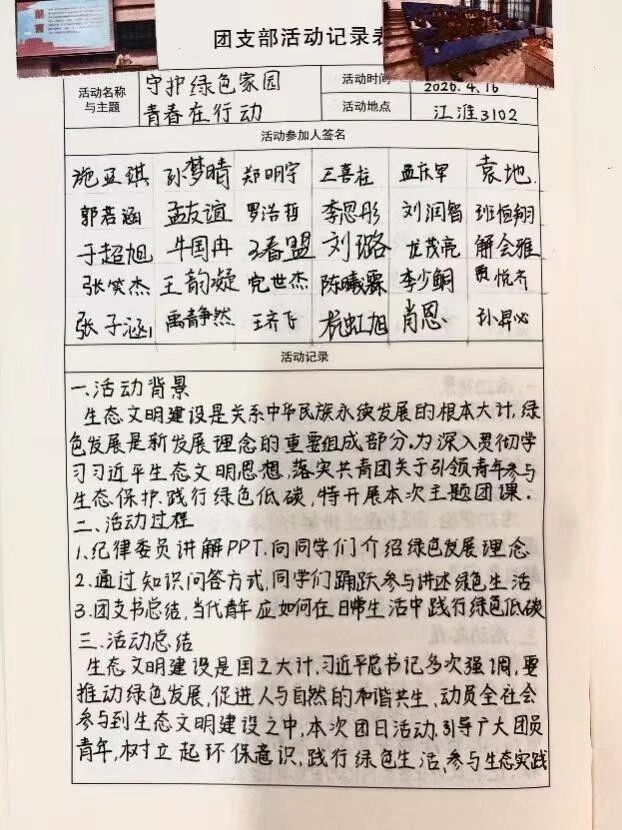 前言
团支部活动记录表
活动名称与主题
守护绿色家园
青春在行动
活动时间 2026.4.16
活动地点 江淮3102
活动参加人签名
施亚琪 孙梦晴 郑明宇 王喜柱 孟庆军 袁地
郭若涵 孟友谊 罗浩哲 李思彤 刘润智 班恒翔
于超旭 牛国冉 王春盟 刘璐 尤茂亮 解会雅
张笑杰 王韵凝 完世杰 陈曦霖 李少鲷 贾悦齐
张子涵 禹静然 王齐飞 杭虹旭 肖恩 孙昇必
活动记录
一.活动背景
生态文明建设是关系中华民族永续发展的根本大计,绿
色发展是新发展理念的重要组成部分.为深入贯彻学
习习近平生态文明思想,落实共青团关于引领青年参与
生态保护.践行绿色低碳,特开展本次主题团课.
二、活动过程
1.纪律委员讲解PPT.向同学们介绍绿色发展理念
2.通过知识问答方式,同学们踊跃参与讲述绿色生活
3.团支书总结,当代青年应如何在日常生活中践行绿色低碳
三.活动总结
生态文明建设是国之大计,习近平总书记多次强调,要
推动绿色发展,促进人与自然的和谐共生,动员全社会
参与到生态文明建设之中,本次团日活动,引导广大团员
青年,树立起环保意识,践行绿色生活,参与生态实践